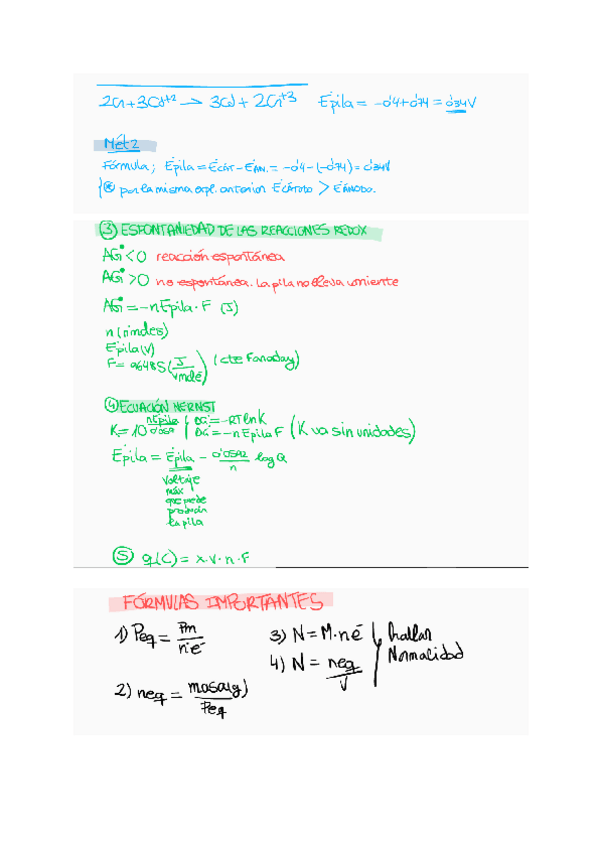 2Cr+3Cd⁺² → 3Cd + 2Cr⁺³ Epila = -0'4+0'74 = 0'34V
Mét 2
Fórmula; E°pila = E°CÁT - E°AN. = -0'4 - (-0'74) = 0'34V
por la misma expl. anterior E°CÁTODO > E°ÁNODO.
③ ESPONTANIEDAD DE LAS REACCIONES REDOX
ΔG° < 0 reacción espontánea
ΔG° > 0 no espontánea. La pila no lleva corriente
ΔG° = -nE°pila · F (J)
n (nºmoles)
E°pila (V)
F = 96485 (J/Vmolé) (cte Faraday)
④ ECUACIÓN NERNST
K = 10^(nE°pila/0'059) ΔG° = -RTlnK
ΔG° = -nE°pilaF (K va sin unidades)
Epila = E°pila - 0'0592/n log Q
Voltaje
máx
que puede
producir
la pila
⑤ q(C) = x·V·n·F
FÓRMULAS IMPORTANTES
1) Peq = Pm/nºe⁻ 3) N = M·né hallar
Normalidad
4) N = neq/V
2) neq = masa(g)/Peq